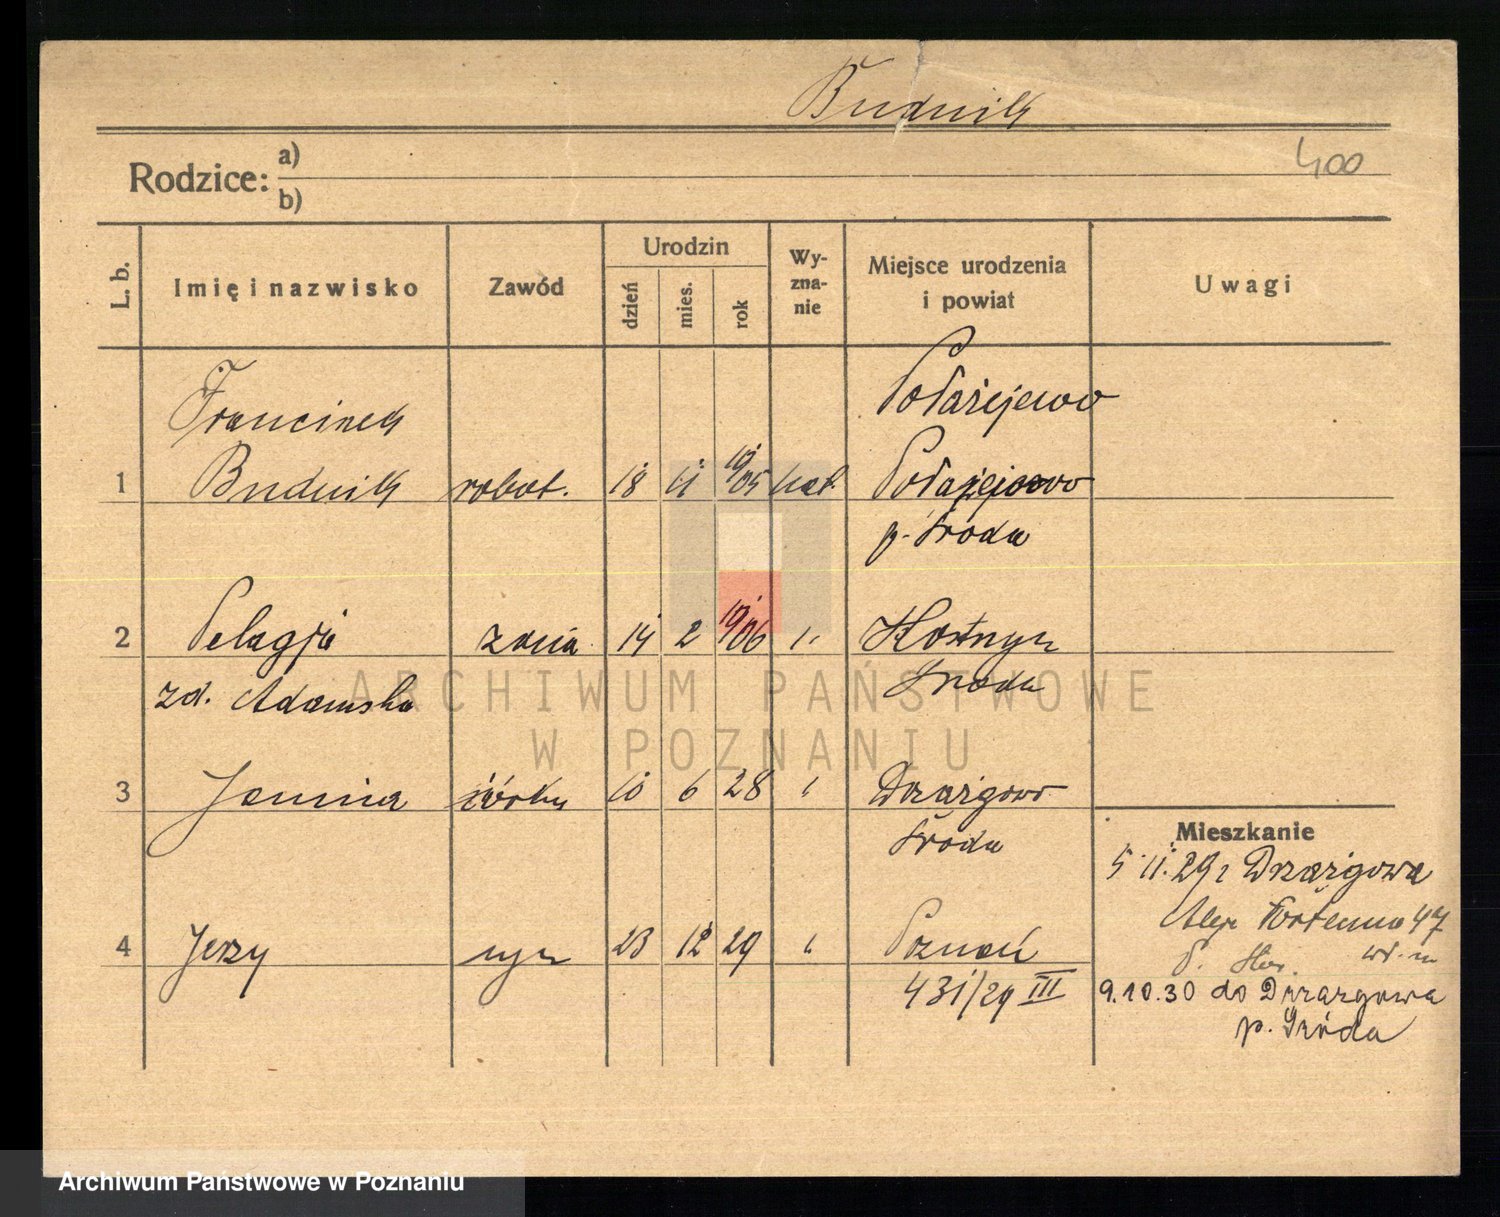 Budnik
400
Rodzice: a)
b)
L. b.
Imię i nazwisko
Zawód
Urodzin
dzień
mies.
rok
Wy-
zna-
nie
Miejsce urodzenia
i powiat
Uwagi
Połażejewo
Franciszek
1 Budnik robot. 18 11 19/05 kat. Połażejewo
p. Środa
2 Pelagja żona 14 2 19/06 " Kostrzyn
zd. Adamska Środa
3 Janina córka 10 6 28 " Drzązgowo
Środa
4 Jerzy syn 23 12 29 " Poznań
431/29 III
Mieszkanie
5.11.29 z Drzązgowa
47
9.10.30 do Drzazgowa
p. Środa
ARCHIWUM PAŃSTWOWE
W POZNANIU
Archiwum Państwowe w Poznaniu